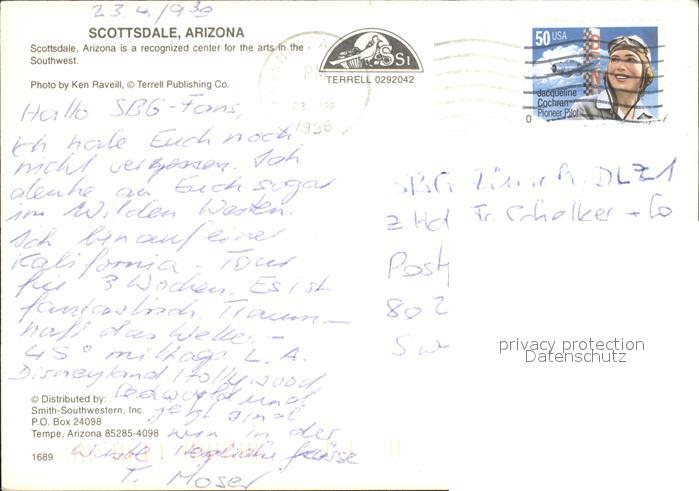 23.4./9 30
SCOTTSDALE, ARIZONA
Scottsdale, Arizona is a recognized center for the arts in the
Southwest.
Photo by Ken Raveill, © Terrell Publishing Co.
SSI
TERRELL 0292042
PM
1996
50 USA
Jacqueline
Cochran
Pioneer Pilot
Hallo SBG-Fans,
Ich habe Euch noch
nicht vergessen. Ich
denke an Euch sogar
im Wilden Westen.
Ich bin auf einer
Kalifornia-Tour
für 3 Wochen. Es ist
fantastisch. Traum-
haft das Wetter -
45° mittags L.A.
Disneyland Hollywood
und
jetzt sind
wir in der
Wüste. Herzliche Grüsse
T. Moser
SBG Zürich, DLZ1
z.Hd Fr. Schalker + Co
Post
802
Sw
privacy protection
Datenschutz
© Distributed by:
Smith-Southwestern, Inc.
P.O. Box 24098
Tempe, Arizona 85285-4098
1689